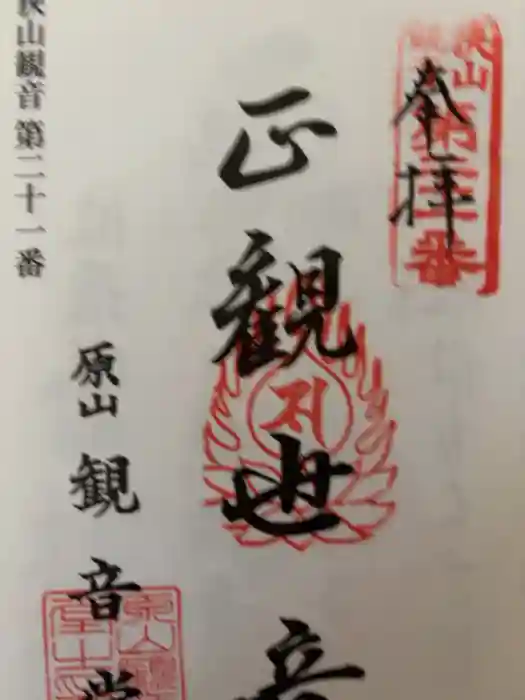 奉拝
正観世音
原山観音堂
狭山観音第二十一番